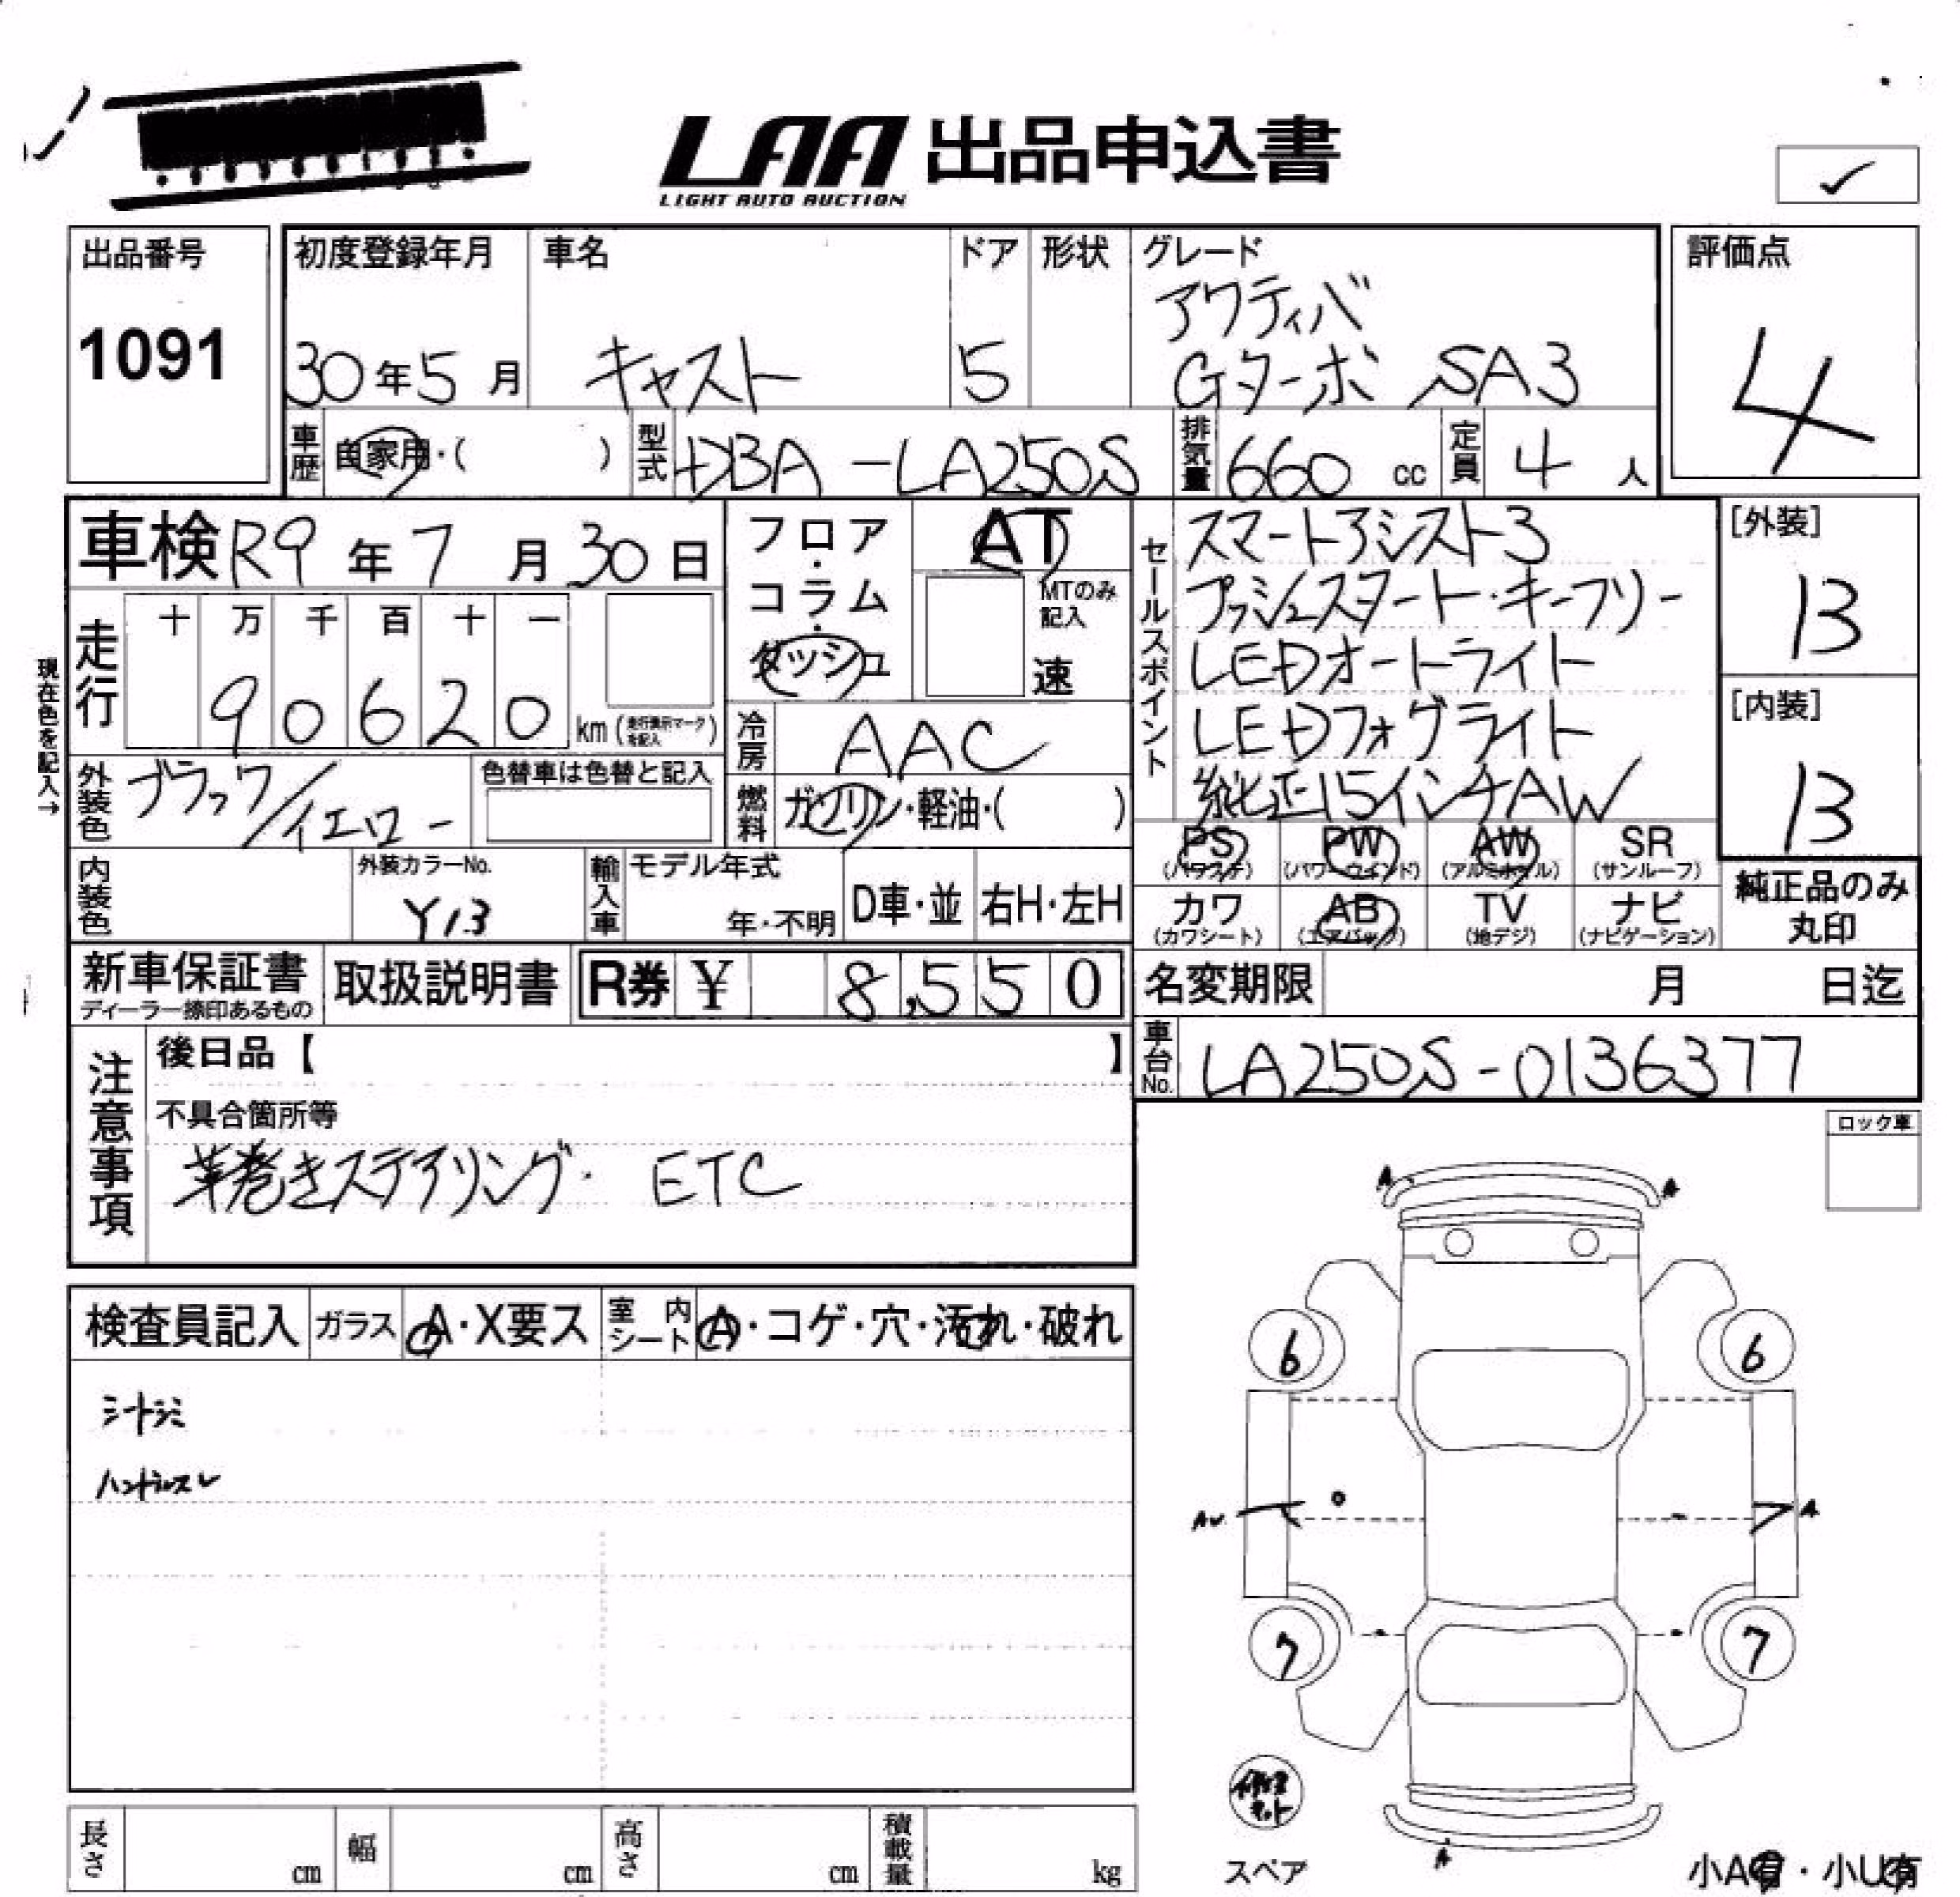 LAA 出品申込書
LIGHT AUTO AUCTION
出品番号
1091
初度登録年月
30年5月
車名
キャスト
ドア
5
形状
グレード
アクティバ
Gターボ SA3
評価点
4
車歴 自家用・( )
型式 DBA -LA250S
排気量 660 cc
定員 4 人
車検 R9年7月30日
フロア・コラム・ダッシュ
AT
MTのみ記入
速
走行
十 万 千 百 十 一
90620 km (走行表示マークを記入)
現在色を記入→
冷房 AAC
外装色 ブラック/イエロー
色替車は色替と記入
燃料 ガソリン・軽油・( )
セールスポイント
スマートアシスト3
プッシュスタート・キーフリー
LEDオートライト
LEDフォグライト
純正15インチAW
[外装]
13
[内装]
13
内装色
外装カラーNo.
Y13
輸入車
モデル年式
年・不明
D車・並
右H・左H
PS AW SR
PW
(パワステ) (パワーウインド) (アルミホイル) (サンルーフ)
カワ AB TV ナビ
(カワシート) (エアバック) (地デジ) (ナビゲーション)
純正品のみ
丸印
新車保証書
ディーラー捺印あるもの
取扱説明書
R券 ¥ 8,550
名変期限 月 日迄
車台No. LA250S-0136377
注意事項
後日品【 】
不具合箇所等
革巻きステアリング・ ETC
ロック車
検査員記入
ガラス A・X要ス
室内シート A・コゲ・穴・汚れ・破れ
シートシミ
ハンドルスレ
A A
6 6
A
7 7
A
修理キット
スペア
小A有・小U有
長さ cm
幅 cm
高さ cm
積載量 kg